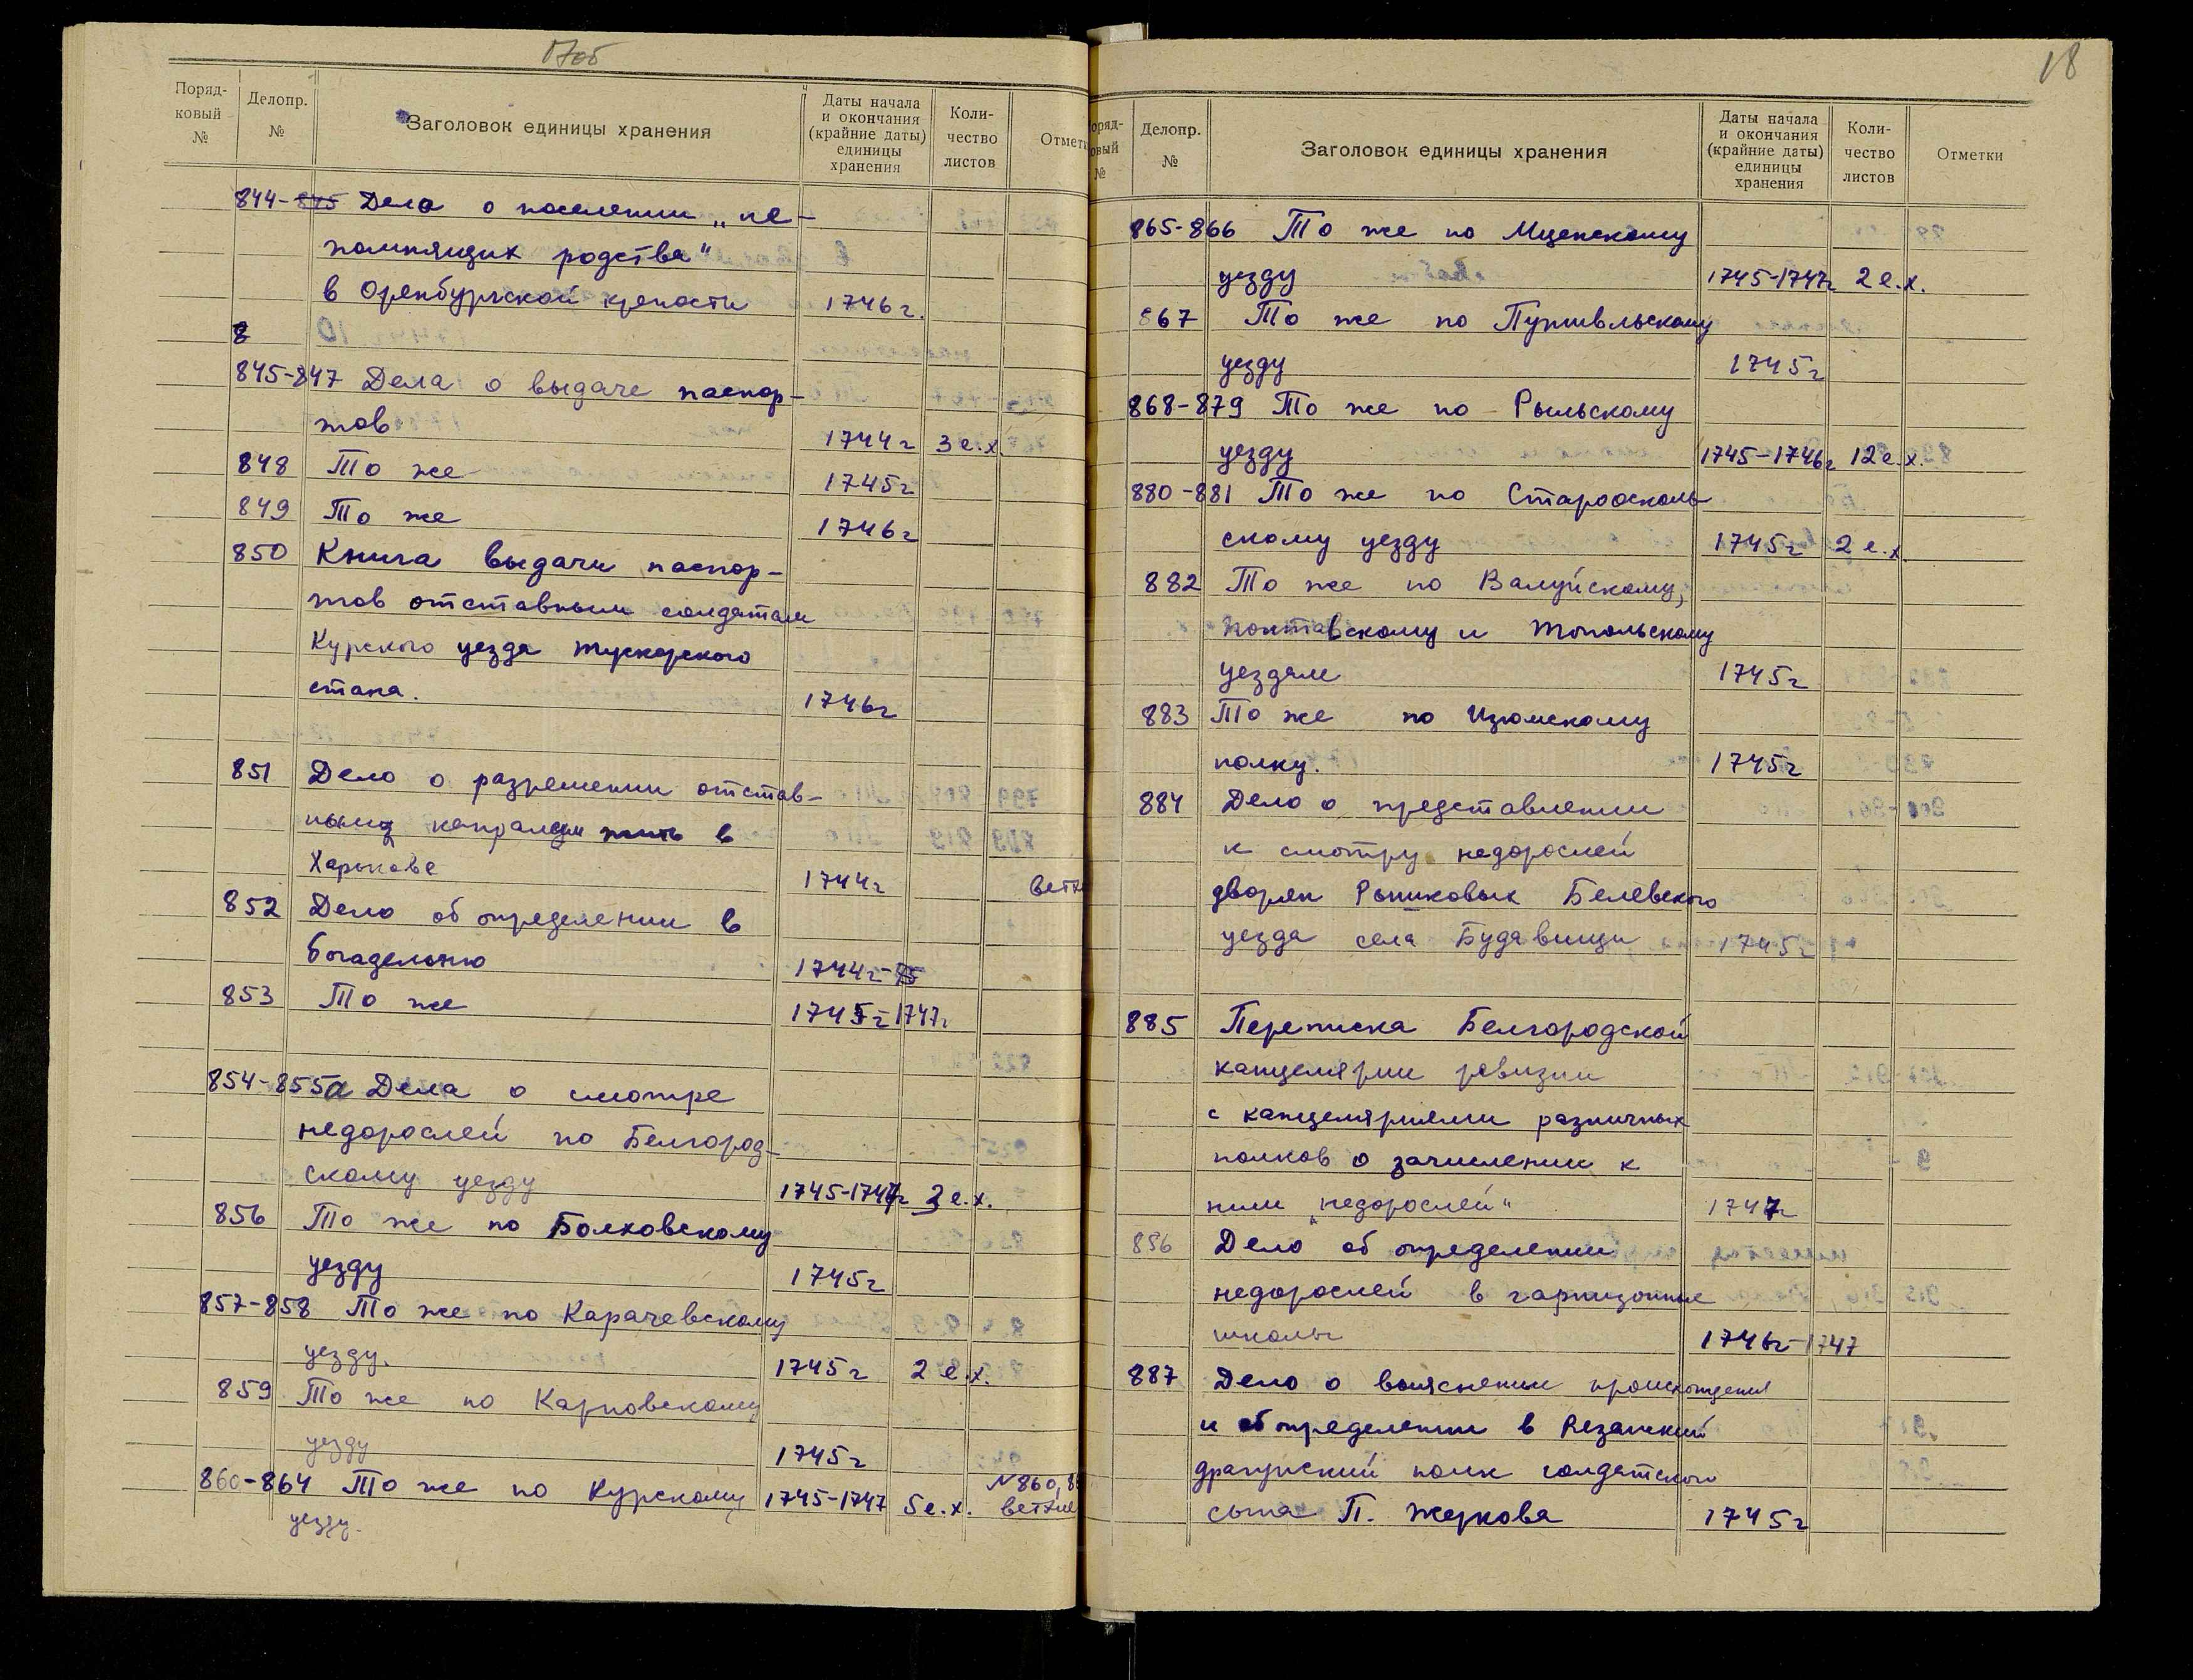 17об
Поряд-
ковый
№
Делопр.
№
Заголовок единицы хранения
Даты начала
и окончания
(крайние даты)
единицы
хранения
Коли-
чество
листов
Отметк
844-845 Дело о поселении „не-
помнящих родства"
в Оренбургской крепости 1746 г.
845-847 Дела о выдаче паспор-
тов 1744 г 3 е.х.
848 То же 1745 г
849 То же 1746 г
850 Книга выдачи паспор-
тов отставным солдатам
Курского уезда тускорского
стана. 1746 г
851 Дело о разрешении отстав-
ным капралам жить в
Харькове 1744 г ветх
852 Дело об определении в
богадельню 1744 г-45
853 То же 1745 г-1747 г
854-855а Дела о смотре
недорослей по Белгород-
скому уезду 1745-1747 г 3 е.х.
856 То же по Болховскому
уезду 1745 г
857-858 То же по Карачевскому
уезду. 1745 г 2 е.х.
859 То же по Карповскому
уезду 1745 г
860-864 То же по Курскому 1745-1747 5 е.х. N 860, 8
уезду. ветхие
18
оряд-
овый
№
Делопр.
№
Заголовок единицы хранения
Даты начала
и окончания
(крайние даты)
единицы
хранения
Коли-
чество
листов
Отметки
865-866 То же по Мценскому
уезду 1745-1747 г 2 е.х.
867 То же по Путивльскому
уезду 1745 г
868-879 То же по Рыльскому
уезду 1745-1746 г 12 е.х.
880-881 То же по Староосколь-
скому уезду 1745 г 2 е.х
882 То же по Валуйскому,
и топольскому
уездам 1745 г
883 То же по Изюмскому
полку. 1745 г
884 Дело о представлении
к смотру недорослей
дворян Белевского
уезда села 1745 г
885 Переписка Белгородской
канцелярии ревизии
с канцеляриями различных
полков о зачислении к
ним „недорослей" 1747 г
856 Дело об определении
недорослей в гарнизонные
школы 1746 г-1747
887 Дело о выяснении происхождения
и об определении в Рязанский
драгунский полк солдатского
сына П. Жеркова 1745 г